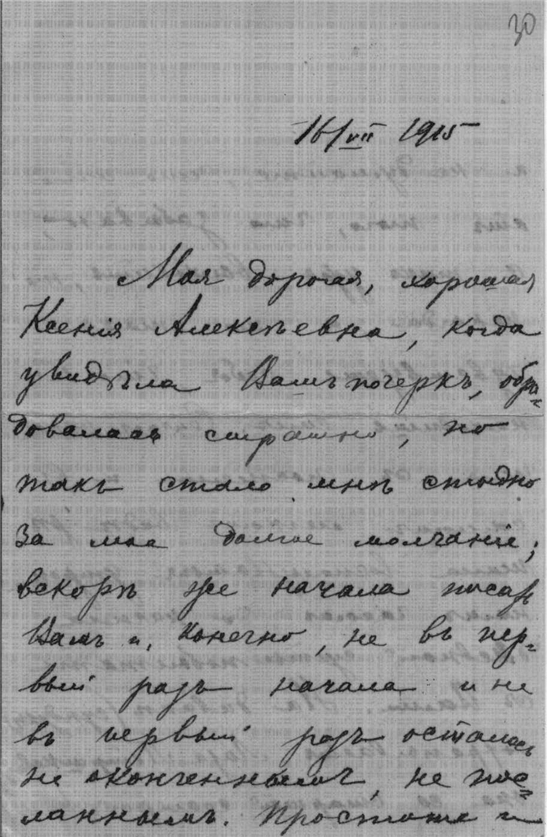 30
16/VII 1915
Моя дорогая, хорошая
Ксенія Алексѣевна, когда
увидѣла Вашъ почеркъ, обра-
довалась страшно, но
такъ стало мнѣ стыдно
за мое долгое молчаніе;
вскорѣ же начала писать
Вамъ и, конечно, не въ пер-
вый разъ начала и не
въ первый разъ осталось
не оконченнымъ, не пос-
ланнымъ. Простите и